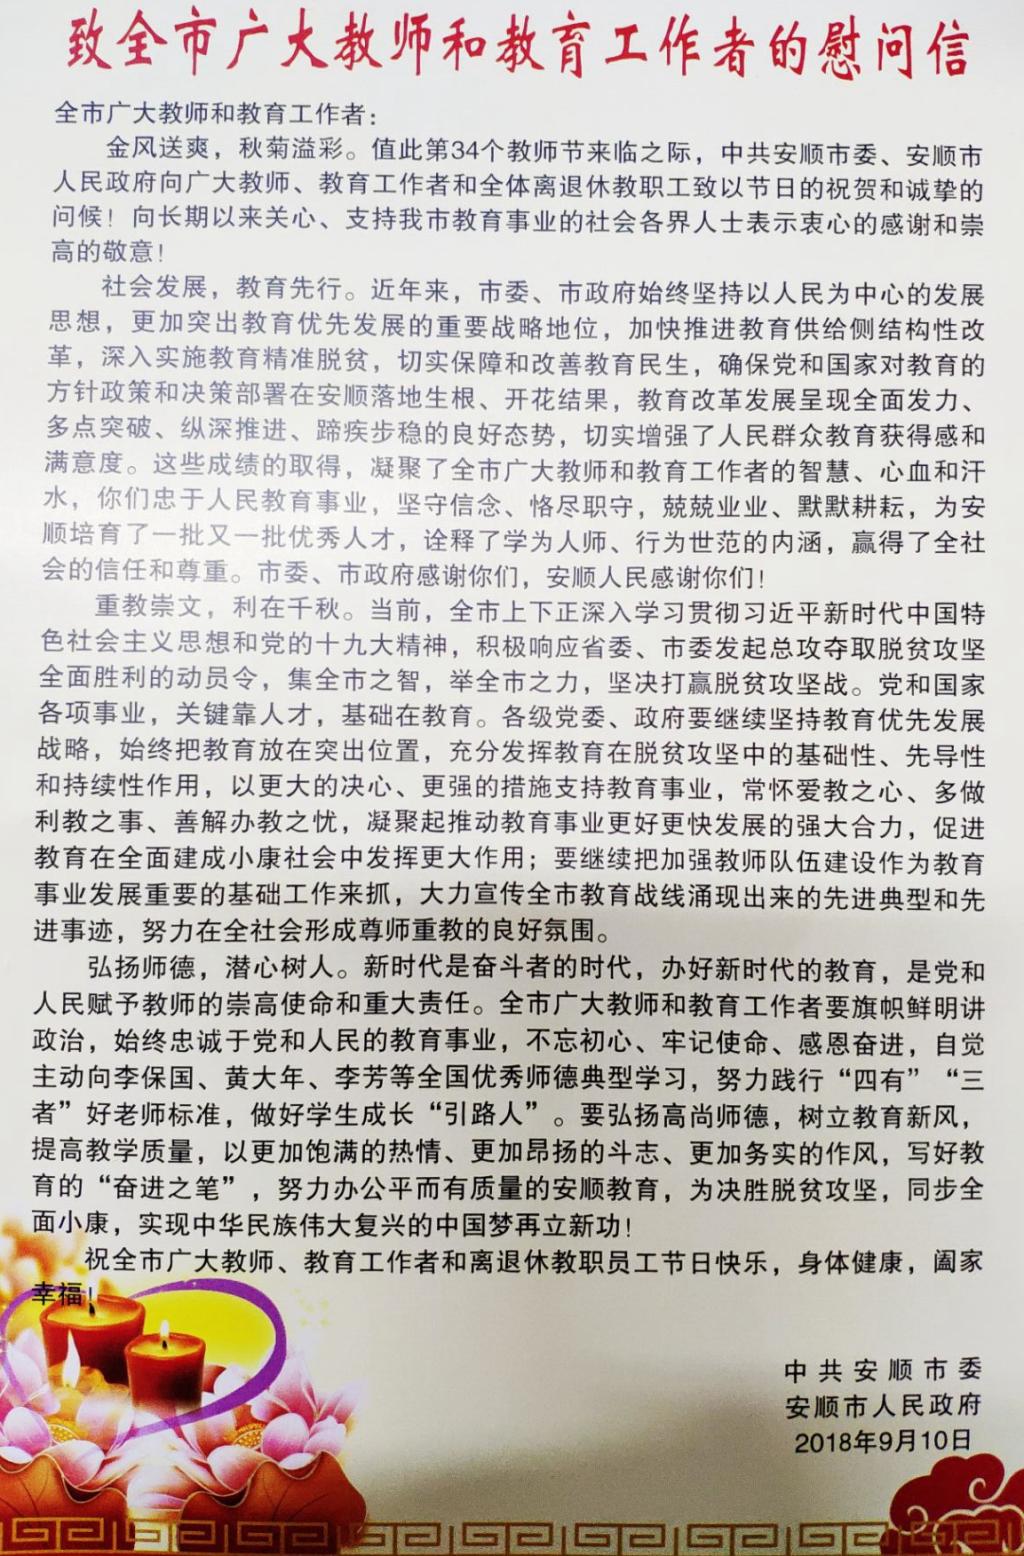 致全市广大教师和教育工作者的慰问信
全市广大教师和教育工作者：
金风送爽，秋菊溢彩。值此第34个教师节来临之际，中共安顺市委、安顺市
人民政府向广大教师、教育工作者和全体离退休教职工致以节日的祝贺和诚挚的
问候！向长期以来关心、支持我市教育事业的社会各界人士表示衷心的感谢和崇
高的敬意！
社会发展，教育先行。近年来，市委、市政府始终坚持以人民为中心的发展
思想，更加突出教育优先发展的重要战略地位，加快推进教育供给侧结构性改
革，深入实施教育精准脱贫，切实保障和改善教育民生，确保党和国家对教育的
方针政策和决策部署在安顺落地生根、开花结果，教育改革发展呈现全面发力、
多点突破、纵深推进、蹄疾步稳的良好态势，切实增强了人民群众教育获得感和
满意度。这些成绩的取得，凝聚了全市广大教师和教育工作者的智慧、心血和汗
水，你们忠于人民教育事业，坚守信念、恪尽职守，兢兢业业、默默耕耘，为安
顺培育了一批又一批优秀人才，诠释了学为人师、行为世范的内涵，赢得了全社
会的信任和尊重。市委、市政府感谢你们，安顺人民感谢你们！
重教崇文，利在千秋。当前，全市上下正深入学习贯彻习近平新时代中国特
色社会主义思想和党的十九大精神，积极响应省委、市委发起总攻夺取脱贫攻坚
全面胜利的动员令，集全市之智，举全市之力，坚决打赢脱贫攻坚战。党和国家
各项事业，关键靠人才，基础在教育。各级党委、政府要继续坚持教育优先发展
战略，始终把教育放在突出位置，充分发挥教育在脱贫攻坚中的基础性、先导性
和持续性作用，以更大的决心、更强的措施支持教育事业，常怀爱教之心、多做
利教之事、善解办教之忧，凝聚起推动教育事业更好更快发展的强大合力，促进
教育在全面建成小康社会中发挥更大作用；要继续把加强教师队伍建设作为教育
事业发展重要的基础工作来抓，大力宣传全市教育战线涌现出来的先进典型和先
进事迹，努力在全社会形成尊师重教的良好氛围。
弘扬师德，潜心树人。新时代是奋斗者的时代，办好新时代的教育，是党和
人民赋予教师的崇高使命和重大责任。全市广大教师和教育工作者要旗帜鲜明讲
政治，始终忠诚于党和人民的教育事业，不忘初心、牢记使命、感恩奋进，自觉
主动向李保国、黄大年、李芳等全国优秀师德典型学习，努力践行“四有”“三
者”好老师标准，做好学生成长“引路人”。要弘扬高尚师德，树立教育新风，
提高教学质量，以更加饱满的热情、更加昂扬的斗志、更加务实的作风，写好教
育的“奋进之笔”，努力办公平而有质量的安顺教育，为决胜脱贫攻坚，同步全
面小康，实现中华民族伟大复兴的中国梦再立新功！
祝全市广大教师、教育工作者和离退休教职员工节日快乐，身体健康，阖家
幸福！
中共安顺市委
安顺市人民政府
2018年9月10日